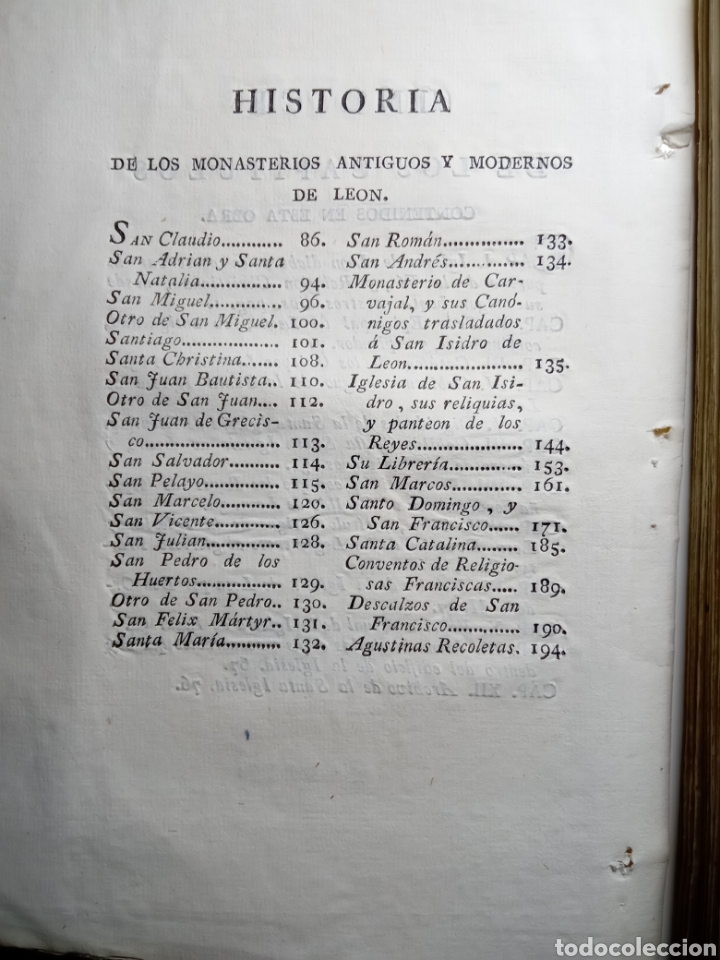 HISTORIA
DE LOS MONASTERIOS ANTIGUOS Y MODERNOS
DE LEON.
SAN Claudio............ 86.
San Adrian y Santa
Natalia............... 94.
San Miguel............ 96.
Otro de San Miguel. 100.
Santiago............... 101.
Santa Christina....... 108.
San Juan Bautista.. 110.
Otro de San Juan.... 112.
San Juan de Grecis-
co..................... 113.
San Salvador......... 114.
San Pelayo............ 115.
San Marcelo.......... 120.
San Vicente........... 126.
San Julian............. 128.
San Pedro de los
Huertos............... 129.
Otro de San Pedro.. 130.
San Felix Mártyr.. 131.
Santa María.......... 132.
San Román............... 133.
San Andrés.............. 134.
Monasterio de Car-
vajal, y sus Canó-
nigos trasladados
á San Isidro de
Leon..................... 135.
Iglesia de San Isi-
dro, sus reliquias,
y panteon de los
Reyes................... 144.
Su Librería............. 153.
San Marcos............. 161.
Santo Domingo, y
San Francisco...... 171.
Santa Catalina........ 185.
Conventos de Religio-
sas Franciscas..... 189.
Descalzos de San
Francisco............. 190.
Agustinas Recoletas. 194.
CONTENIDOS EN ESTA OBRA.
dentro del edificio de la Iglesia. 67.
CAP. XII. Archivo de la Santa Iglesia. 76.
todocoleccion